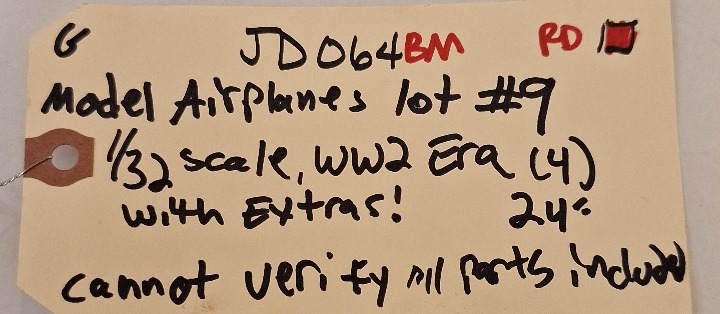 G JD064BM RD
Model Airplanes lot #9
1/32 scale, WW2 Era (4)
with Extras! 24"
cannot verify all parts included